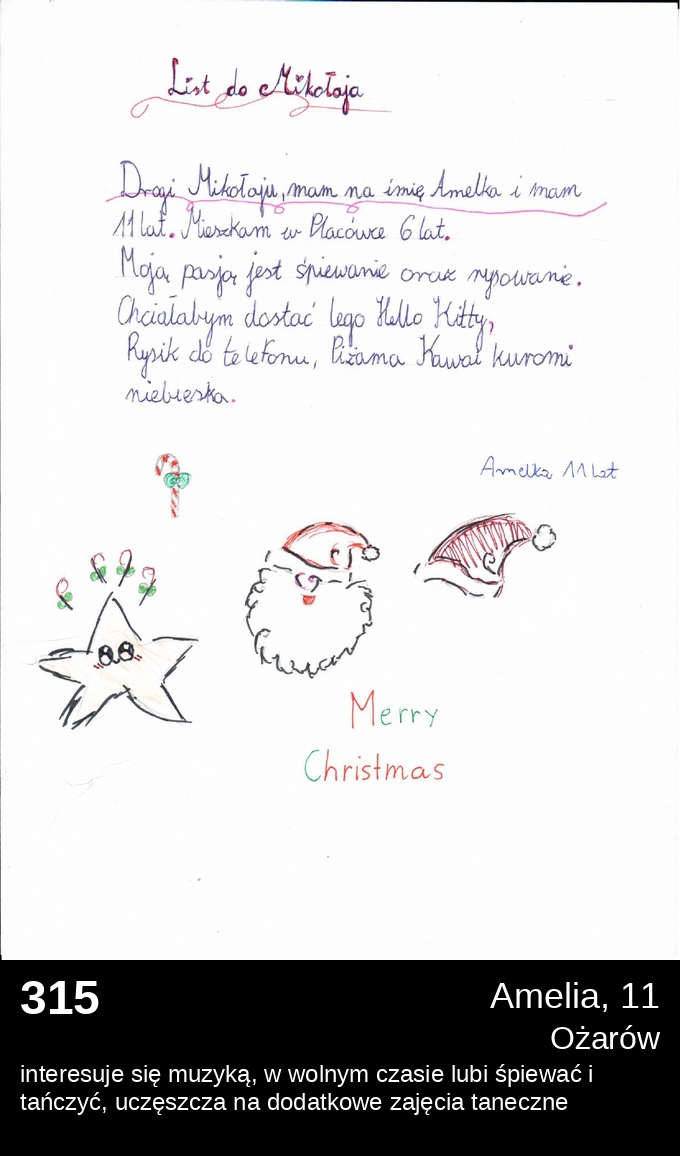 List do Mikołaja
Drogi Mikołaju, mam na imię Amelka i mam
11 lat. Mieszkam w Placówce 6 lat.
Moją pasją jest śpiewanie oraz rysowanie.
Chciałabym dostać lego Hello Kitty,
Rysik do telefonu, Piżama Kawai kuromi
niebieska.
Amelka 11 lat
Merry
Christmas
315
Amelia, 11
Ożarów
interesuje się muzyką, w wolnym czasie lubi śpiewać i
tańczyć, uczęszcza na dodatkowe zajęcia taneczne